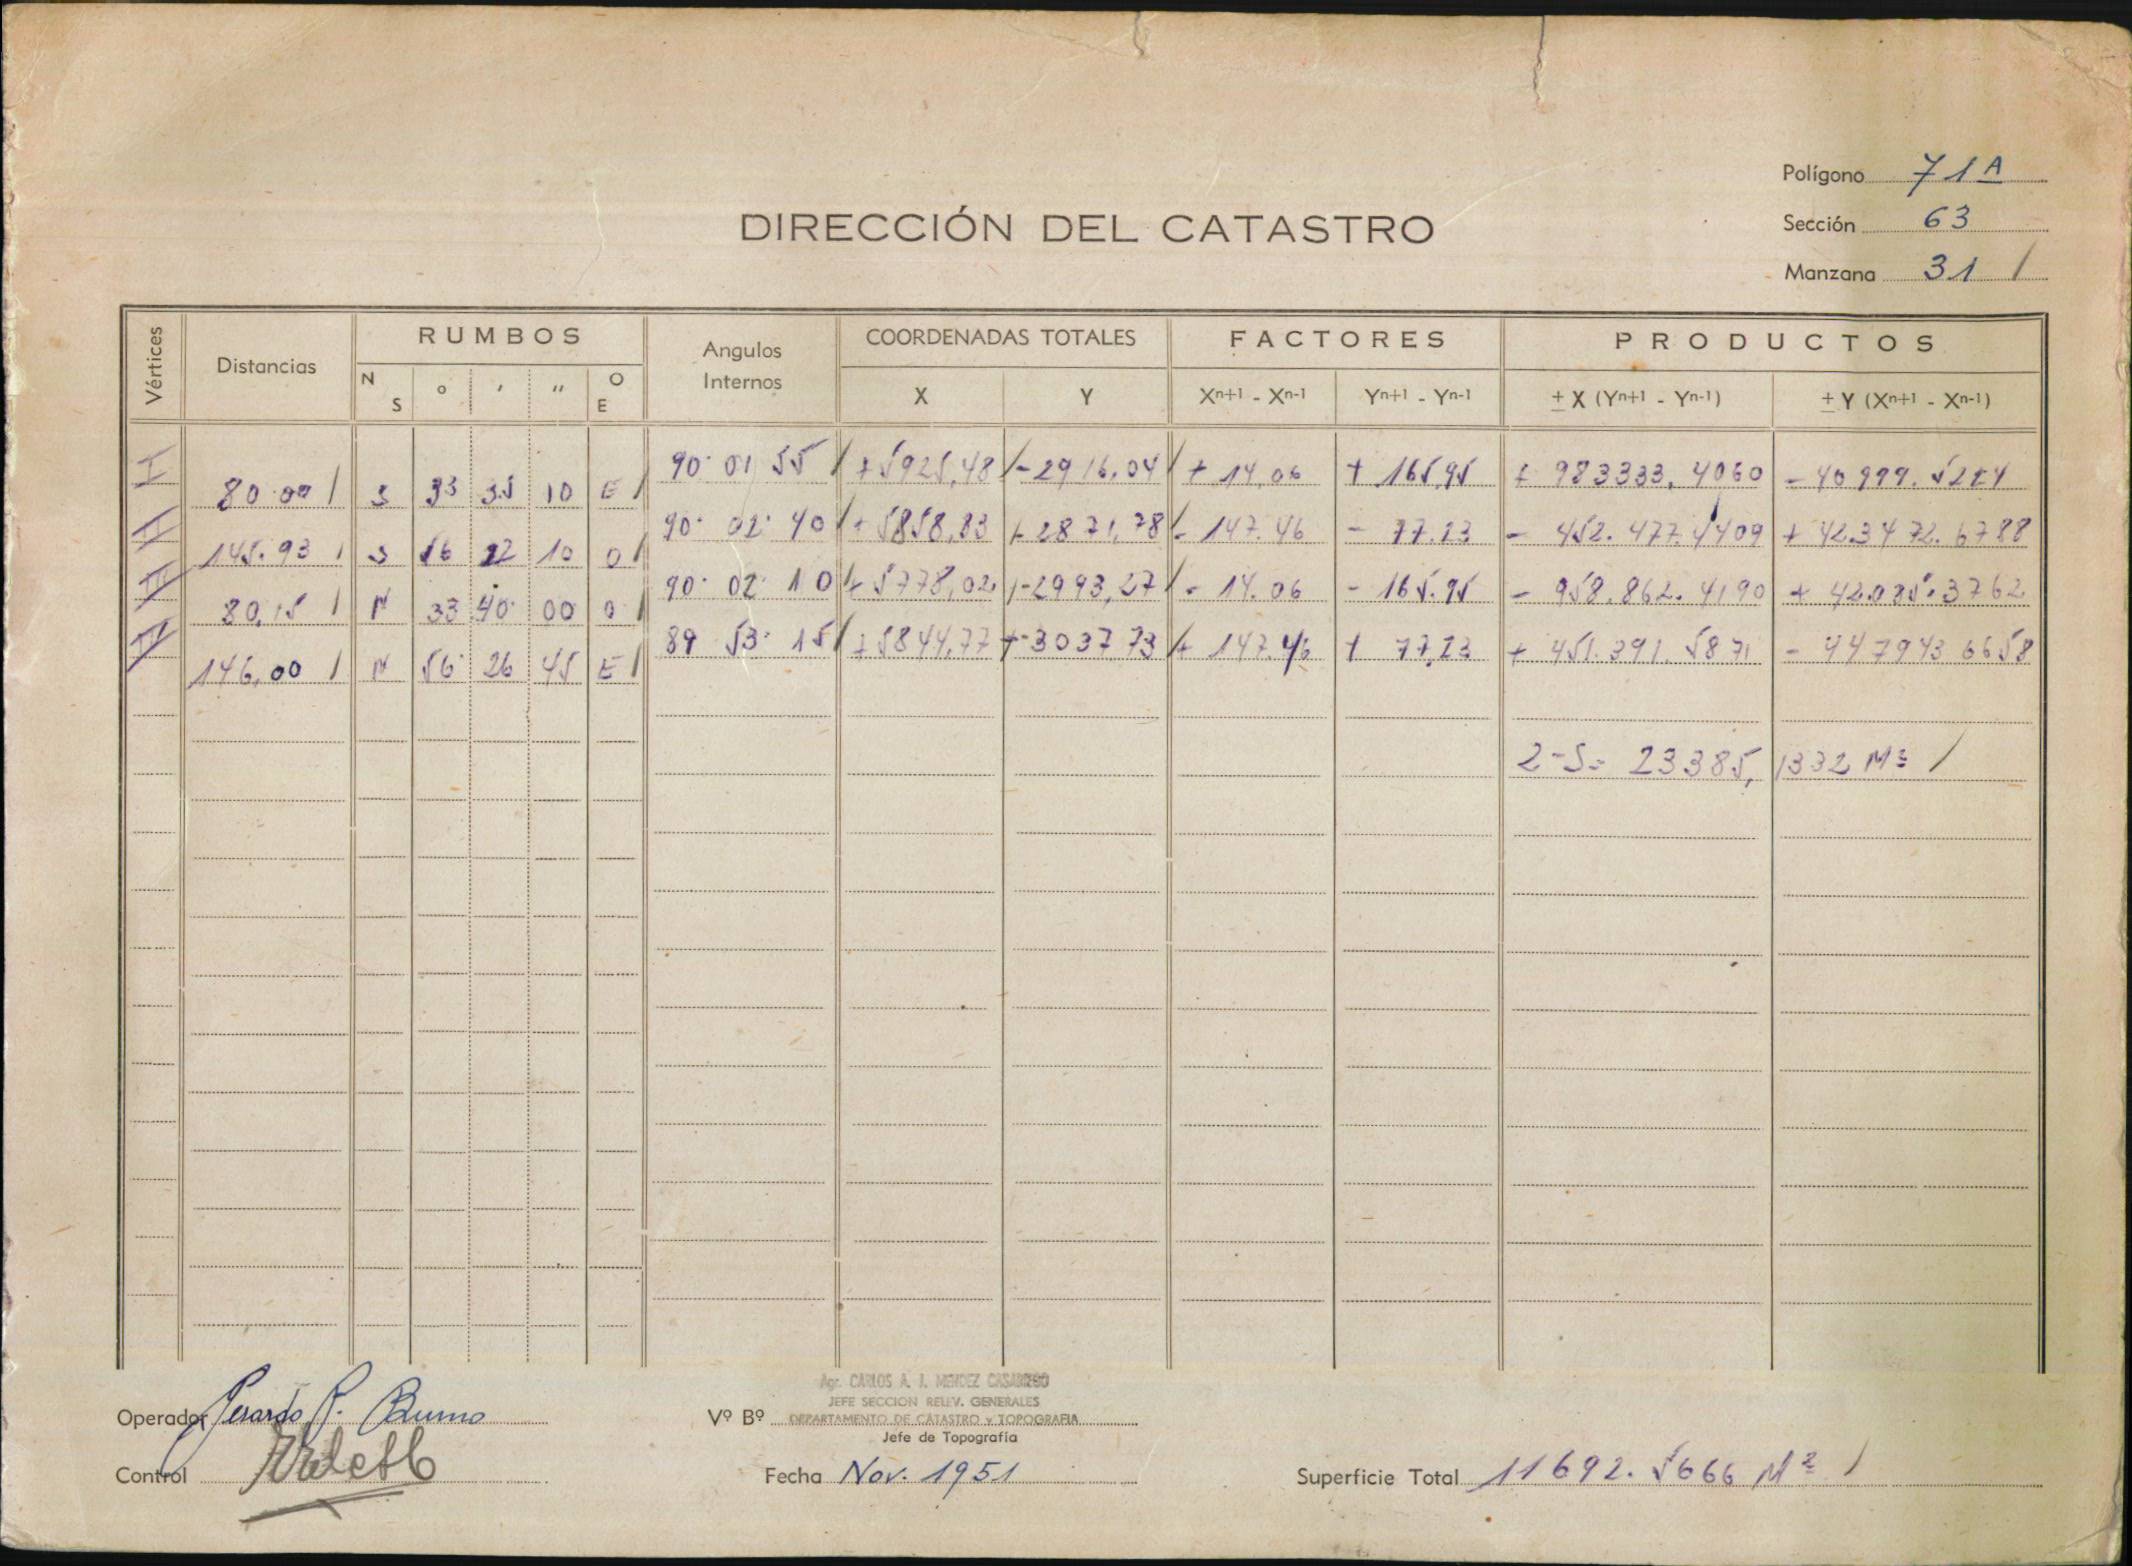 Polígono 71A
DIRECCIÓN DEL CATASTRO
Sección 63
Manzana 31 /
Vértices Distancias RUMBOS Angulos Internos COORDENADAS TOTALES FACTORES PRODUCTOS
N S ° ' " O E X Y Xn+1 - Xn-1 Yn+1 - Yn-1 ± X (Yn+1 - Yn-1) ± Y (Xn+1 - Xn-1)
I 90° 01 55 / + 5925,48 / - 2916.04 / + 14.06 + 165,95 + 983333,4060 - 40999.5224
80.00 / S 33 35 10 E /
II 90° 02' 40 / + 5858,83 / + 2871,78 / - 147.46 - 77.23 - 452.477.4409 + 423472.6788
145.93 / S 56 22 10 O /
III 90° 02' 10 / + 5778,02 / - 2993,27 / - 14.06 - 165.95 - 958.862.4190 + 42.085.3762
80,15 / N 33 40' 00 O /
IV 89 53' 15 / + 5844,77 + - 3037 73 / + 147.46 + 77,23 + 451.391.5871 - 447943 6658
146,00 / N 56° 26 45 E /
2-S= 23385,1332 M2 /
Agr. CARLOS A. J. MENDEZ CASARIEGO
JEFE SECCION RELEV. GENERALES
Operador Gerardo R. Bruno Vº Bº DEPARTAMENTO DE CATASTRO y TOPOGRAFIA
Jefe de Topografía
Control Fecha Nov. 1951 Superficie Total 11692.5666 M2 /